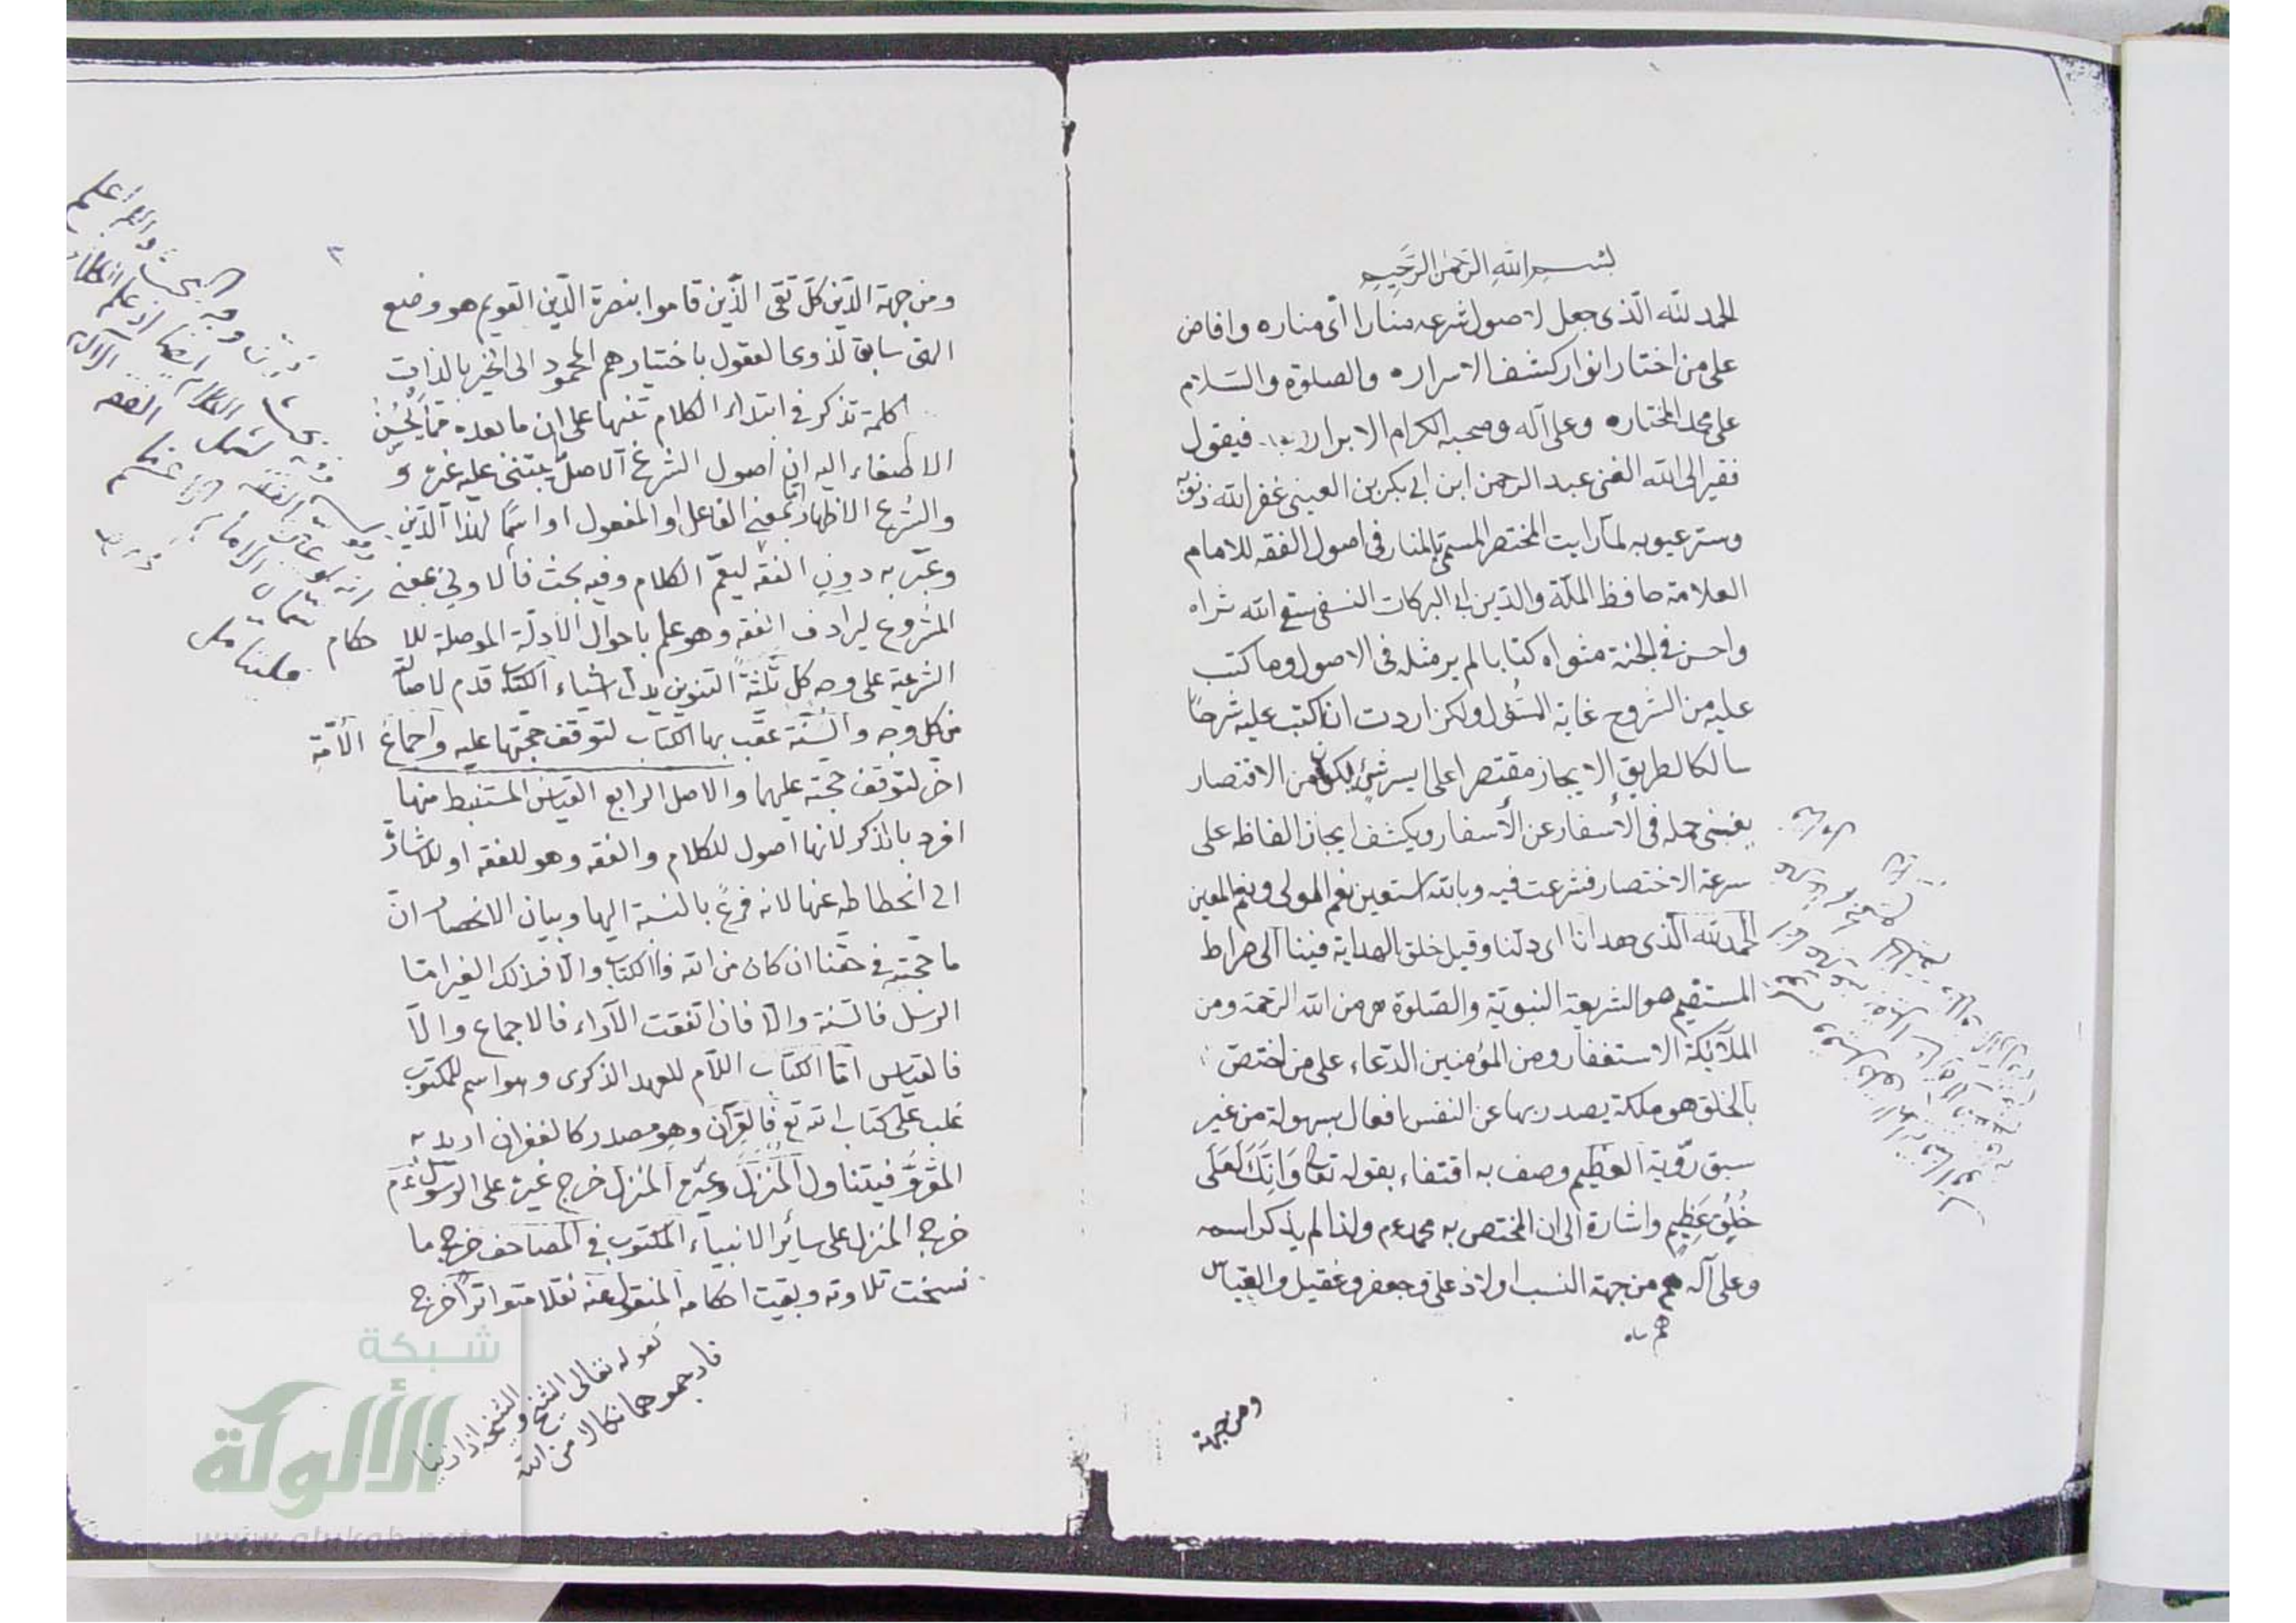 بسم الله الرحمن الرحيم
الحمد لله الّذى جعل لاصول شرعه منارا اى مناره وافاض
على من اختار انوار كشف الاسراره والصلوة والسّلام
على محمد المختاره وعلى آله وصحبه الكرام الابرار فيقول
فقير الى الله الغنى عبد الرحمن ابن ابى بكر بن العينى غفر الله ذنوبه
وستر عيوبه لمآ رايت المختصر المسمّى بالمنار فى اصول الفقه للامام
العلامة حافظ الملّة والدّين ابى البركات النسفى سقى الله ثراه
واحسن فى الجنة مثواه كتابا لم ير مثله فى الاصول وما كتب
عليه من الشروح غاية السُّول ولكن اردت ان اكتب عليه شرحا
سالكا لطريق الايجاز مقتصرا على ايسر شئ ليكون من الاقتصار
يغنى حمله فى الأسفار عن الأسفار ويكشف ايجاز الفاظه على
سرعة الاختصار فشرعت فيه وبالله استعين نعم المولى ونعم المعين
الحمد لله الّذى هدانا اى دلّنا وقيل خلق الهداية فينا الى صراط
المستقيم هو الشريعة النبويّة والصّلوة هى من الله الرّحمة ومن
الملآئكة الاستغفار ومن المؤمنين الدّعاء على من اختصّ
بالخلق هو ملكة يصدر بها عن النفس افعال بسهولة من غير
سبق رؤية العظيم وصف به اقتفاء بقوله تعالى وَاِنَّكَ لَعَلَى
خُلُقٍ عَظِيمٍ واشارة الى ان المختص به محمد عم ولذا لم يذكر اسمه
وعلى آله هم من جهة النسب اولاد على وجعفر وعقيل والعباس
هم
ومن جهة
ومن جهة الدّين كلّ تقى الّذين قاموا بنصرة الدّين القويم هو وضع
الهى سابق لذوى العقول باختيارهم المحمود الى الخير بالذات
كلمة تذكر فى ابتداء الكلام تنبها على ان ما بعده ممّا يحسن
الاصغاء اليه ان اصول الشرع الاصل ما يبتنى عليه غيره و
والشرع الاظهار امّا بمعنى الفاعل او المفعول او اسمًا لهذا الدّين
وعبّر به دون الفقه ليعمّ الكلام وفيه بحث فالاولى بمعنى
المشروع ليرادف الفقه وهو علم باحوال الأدلّة الموصلة للاحكام
الشرعية على وجه كلى ثلثةٌ التنوين بدل اشياء الكتاب قدم لاصالته
من كل وجه والسّنّة عقّب بها الكتاب لتوقف حجّتها عليه واجماع الأمّة
اخر لتوقف حجّته عليهما والاصل الرابع القياس المستنبط منها
افرد بالذكر لانها اصول للكلام والفقه وهو للفقه او للاشارة
الى انحطاطه عنها لانه فرعٌ بالنسبة اليها وبيان الانحصار انّ
ما حجّته فى حقّنا ان كان من الله فالكتاب والّا فذلك الغير امّا
الرسل فالسّنة والّا فان اتفقت الآراء فالاجماع والّا
فالقياس امّا الكتاب اللّام للعهد الذكرى وهو اسم للمكتوب
غلب على كتاب الله تع فالقرآن وهو مصدر كالغفران اريد به
المقروّ فيتناول المنزّل وغيره المنزل خرج غيره على الرسول عم
خرج المنزل على سائر الانبياء المكتوب فى المصاحف خرج ما
نسخت تلاوته وبقيت احكامه المنقول عنه نقلا متواترًا خرج
كقوله تعالى الشيخ والشيخة اذا زنيا
فارجموهما نكالا من الله
شبكة
الألوكة
www.alukah.net